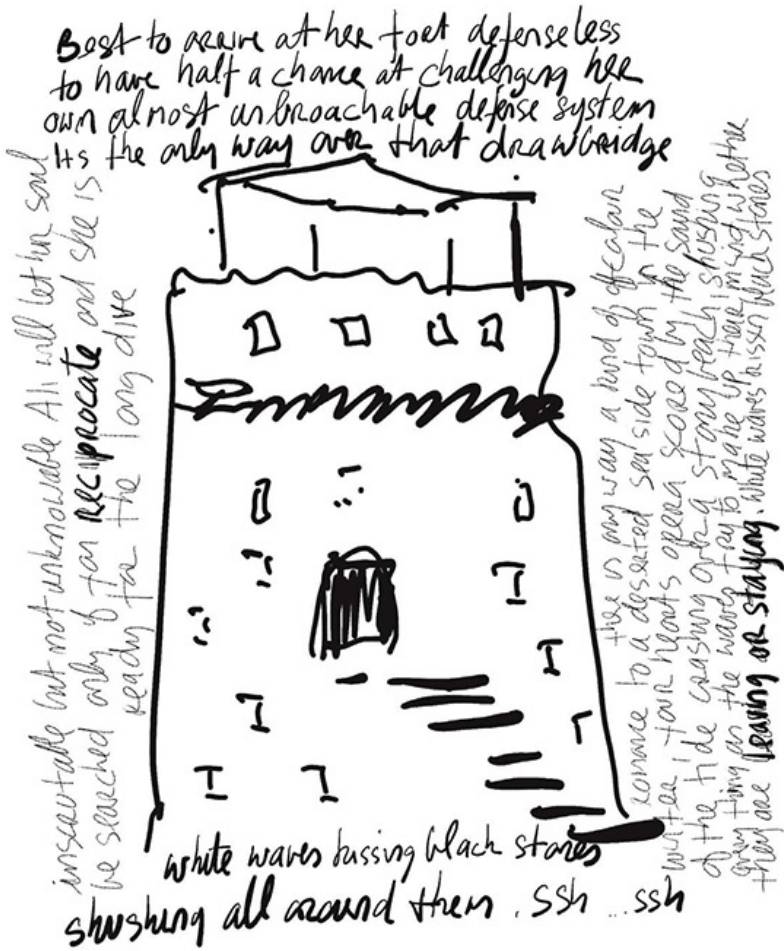 Best to arrive at her foot defenseless
to have half a chance at challenging her
own almost unbroachable defense system
Its the only way over that drawbridge
inscrutable but not unknowable Ali will let her soul
be searched only if you RECIPROCATE and she is
ready for the long dive
there is anyway a kind of
romance to a deserted sea side town in the
winter, your hearts opera scored by the sand
of the tide crashing over a stony beach, shushing
every thing as the waves try to make up their mind whether
they are leaving or staying. white waves kissing black stones
white waves kissing black stones
shushing all around them. ssh ... ssh